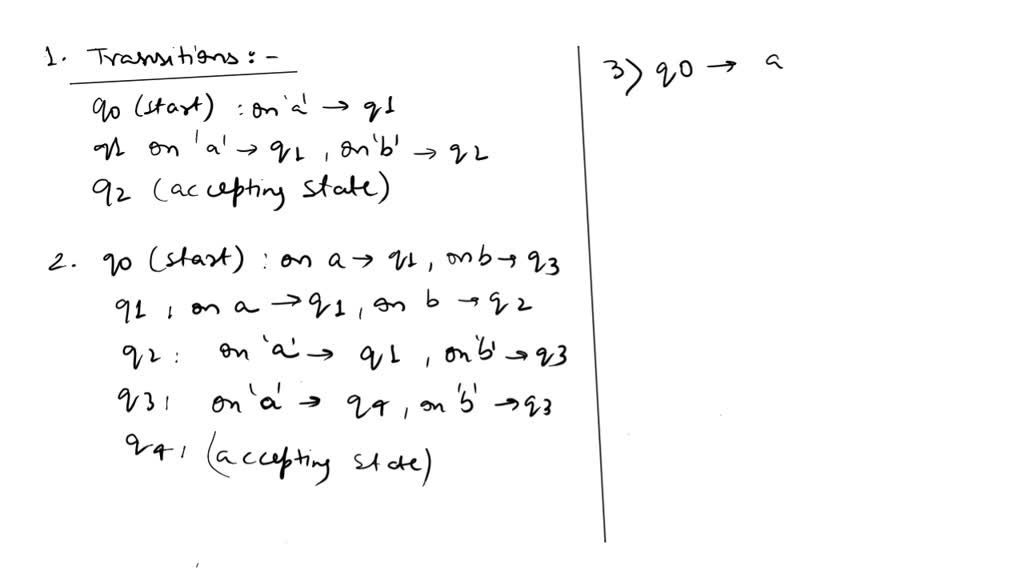 1. Transitions:-
q0 (start) : on 'a' → q1
q1 on 'a' → q1, on 'b' → q2
q2 (accepting state)
2. q0 (start) : on a → q1, on b → q3
q1, on a → q1, on b → q2
q2: on 'a' → q1, on 'b' → q3
q3, on 'a' → q4, on 'b' → q3
q4, (accepting state)
3) q0 → a